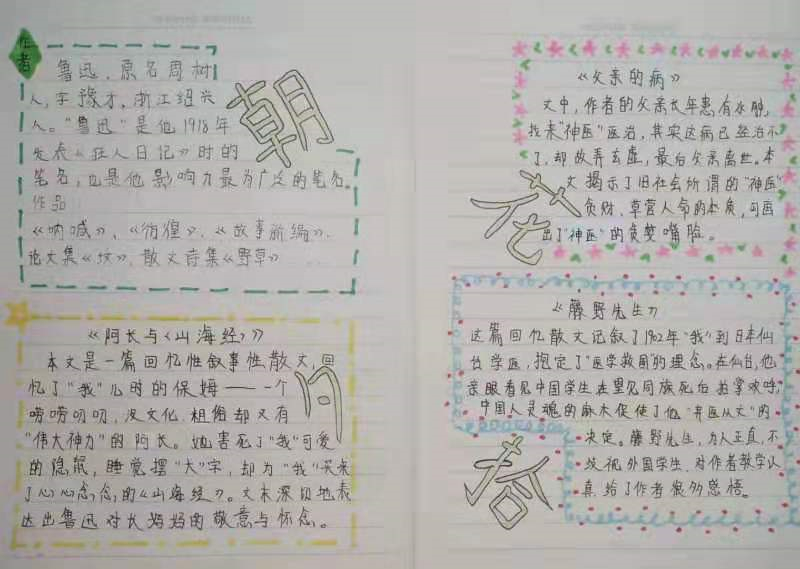 作者
鲁迅，原名周树
人，字豫才，浙江绍兴
人。"鲁迅"是他1918年
发表《狂人日记》时的
笔名，也是他影响力最为广泛的笔名。
作品
《呐喊》、《彷徨》、《故事新编》、
论文集《坟》、散文诗集《野草》……
朝
《阿长与〈山海经〉》
本文是一篇回忆性叙事性散文，回
忆了"我"儿时的保姆——一个
唠唠叨叨，没文化，粗俗却又有
"伟大神力"的阿长。她害死了"我"可爱
的隐鼠，睡觉摆"大"字，却为"我"买来
了心心念念的《山海经》。文末深切地表
达出鲁迅对长妈妈的敬意与怀念。
夕
《父亲的病》
文中，作者的父亲长年患有水肿，
找来"神医"医治，其实这病已经治不
了，却故弄玄虚，最后父亲离世。本
文揭示了旧社会所谓的"神医"
贪财，草菅人命的本质，可画
出了"神医"的贪婪嘴脸。
花
《藤野先生》
这篇回忆散文记叙了1902年"我"到日本仙
台学医，抱定了"医学救国"的理念。在仙台，他
亲眼看见中国学生在望见同族死后拍拿欢呼，
中国人灵魂的麻木促使了他"弃医从文"的
决定。藤野先生，为人正直，不
歧视外国学生，对作者教学认
真，给了作者很多感悟。
拾